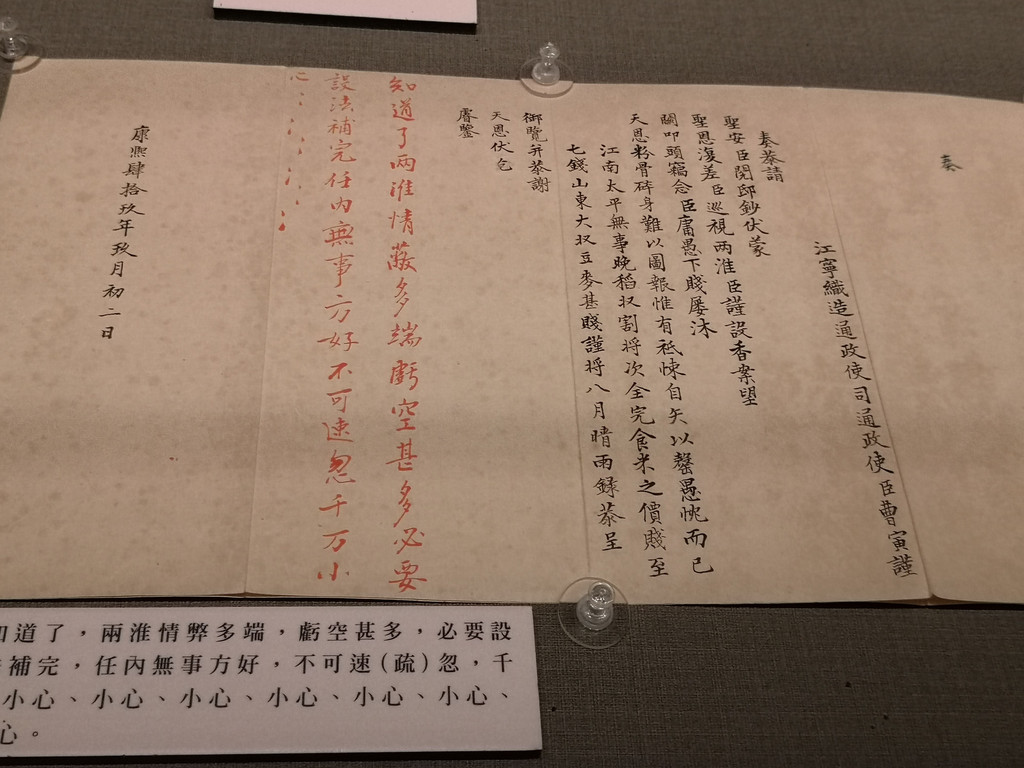 奏
江寧織造通政使司通政使臣曹寅謹
奏恭請
聖安臣閱邸鈔伏蒙
聖恩復差臣巡視两淮臣謹設香案望
闕叩頭竊念臣庸愚下賤屡沐
天恩粉骨碎身難以圖報惟有祗悚自矢以罄愚忱而已
江南太平無事晚稻収割将次全完食米之價賤至
七錢山東大収豆麥甚賤謹将八月晴雨録恭呈
御覽并恭謝
天恩伏乞
睿鑒
知道了两淮情蔽多端虧空甚多必要
設法補完任内無事方好不可速忽千万小
心
康熙肆拾玖年玖月初二日
知道了，兩淮情弊多端，虧空甚多，必要設
補完，任內無事方好，不可速(疏)忽，千
小心、小心、小心、小心、小心、小心、
心。